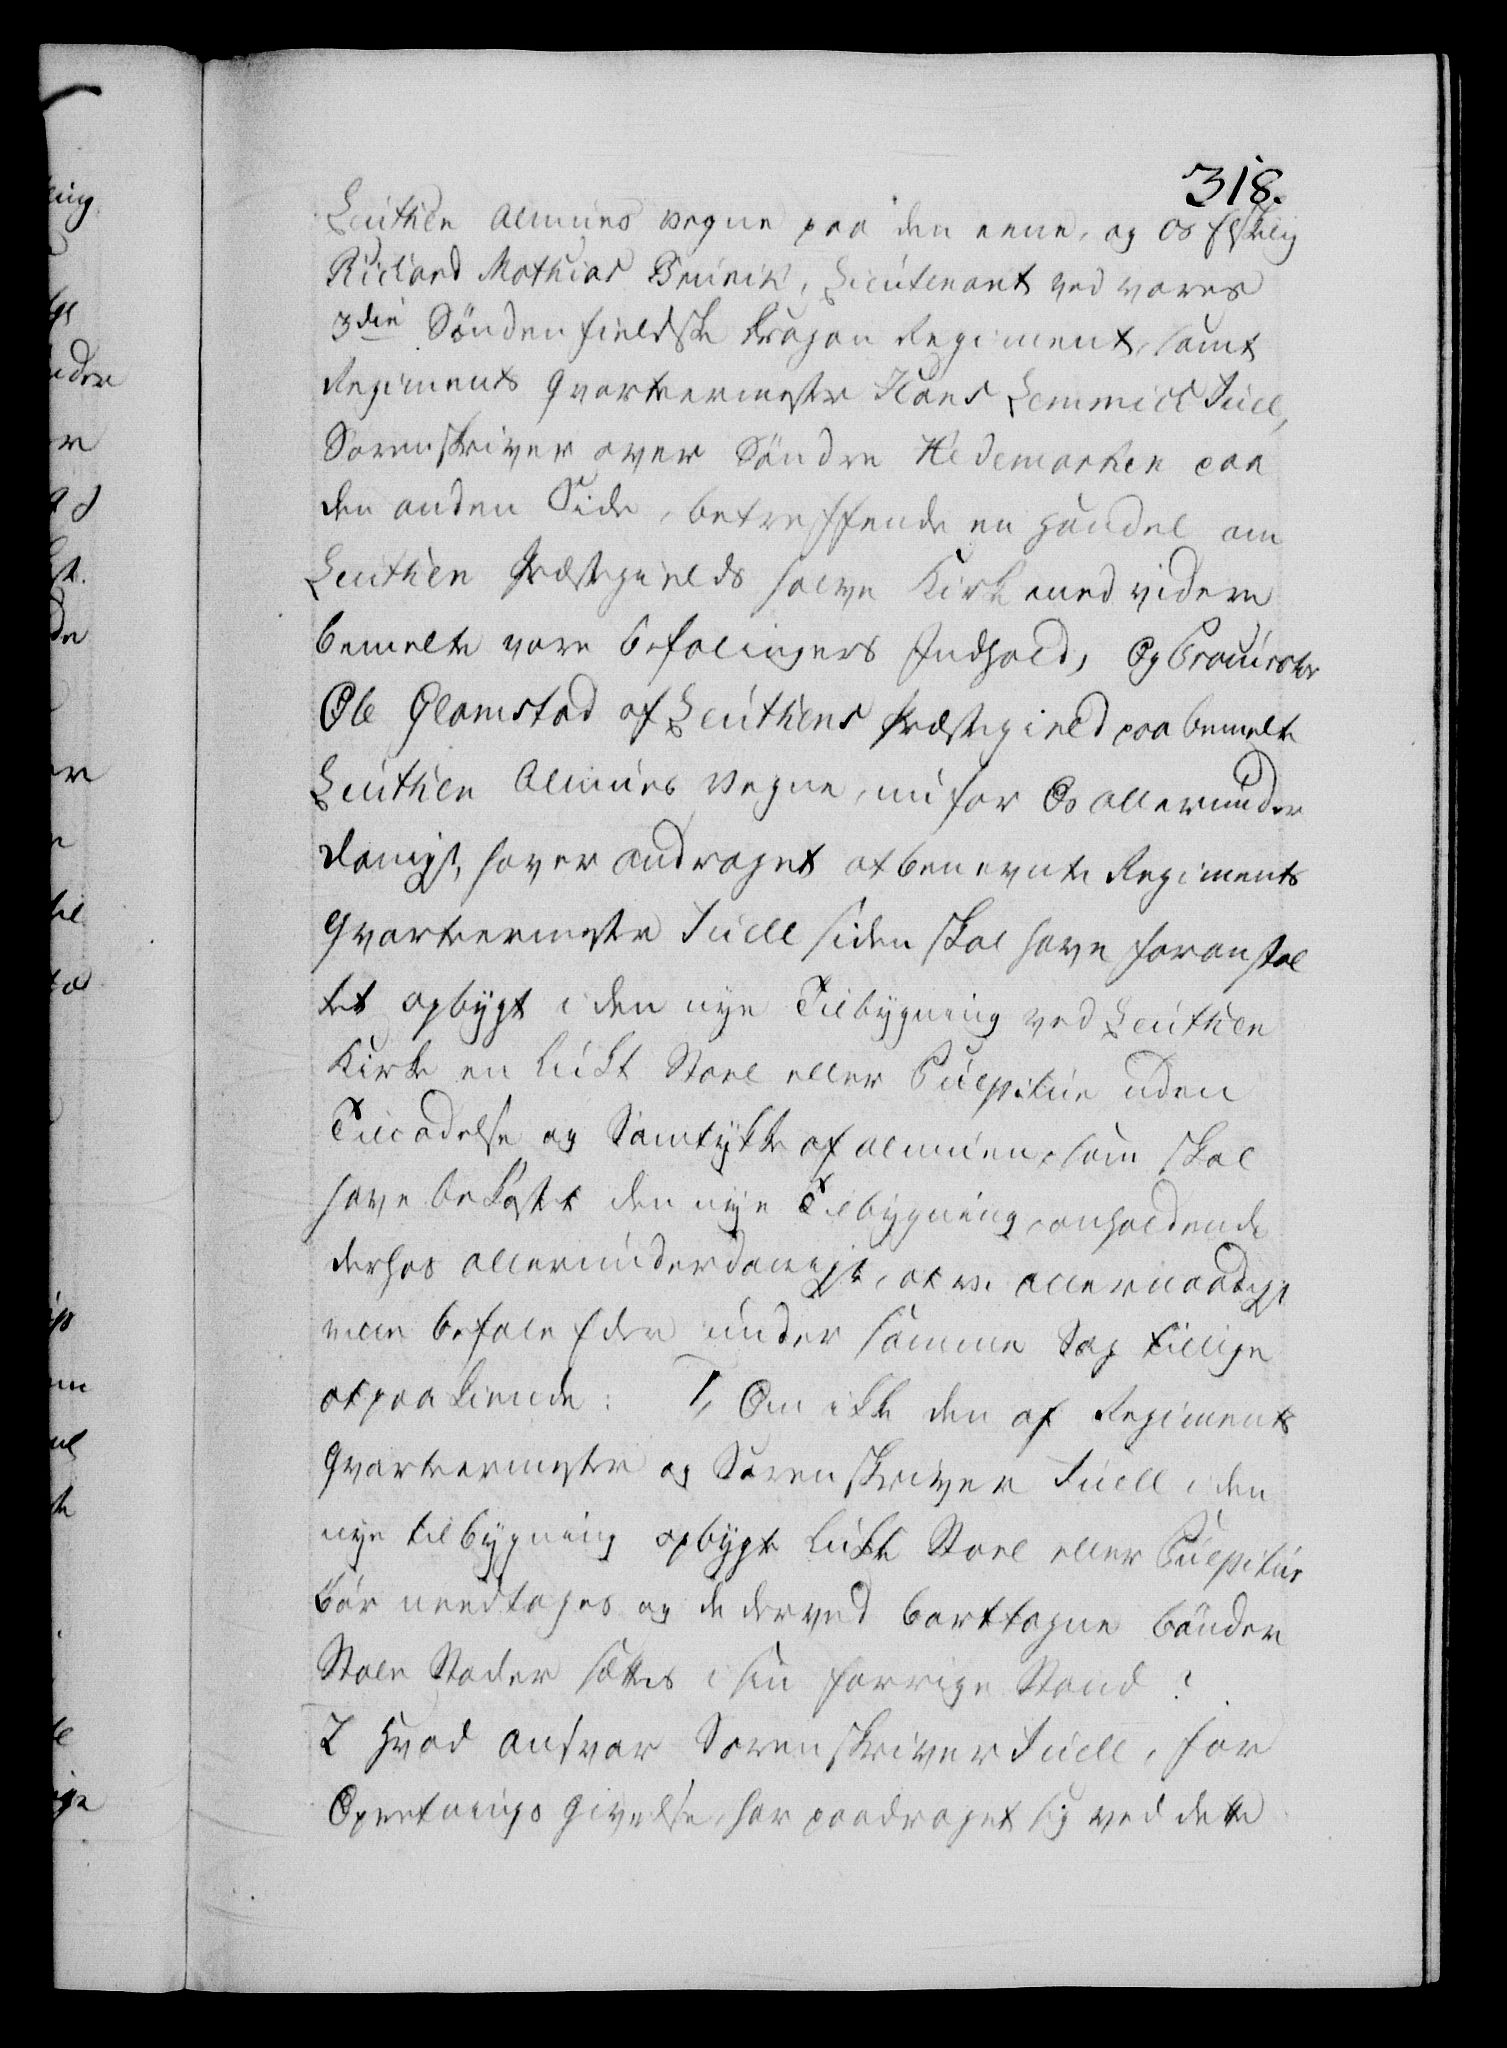 318.
Leuthen Almues vegne paa den eene, og Os Elskelig
Richard Mathias Brinch, Lieutenant ved vores
3die Söndenfieldske Dragon Regiment, samt
Regiments Qvarteermester Hans Lemmich Juell,
Sorenskriver over Söndre Hedemarken paa
den anden Side, betreffende en Handel om
Leuthen Præstegields halve Kirke med videre
bemelte vore Befalingers Indhold, Og Procurator
Ole Glamstad af Leuthens Præstegield paa bemelte
Leuthen Almues vegne, nu for Os allerunder
danigst haver andraget at benevnte Regiments
Qvarteermester Juell siden skal have foranstal
tet opbygt i den nye Tilbygning ved Leuthen
Kirke en lukt Stoel eller Pulpitur uden
Tilladelse og Samtykke af almuen, som skal
have bekostet den nye Tilbygning, anholdende
derhos allerunderdanigst, at vi allernaadigst
ville befale Eder under samme Sag tillige
at paakiende: 1, Om ikke den af Regiments
Qvarteermester og Sorenskriver Juell i den
nye tilbygning opbygte lukte Stoel eller Pulpitur
bör needtages og de derved borttagne bönder
Stole Stader sættes i sin forrige Stand?
2 Hvad Ansvar Sorenskriver Juell, for
Opretnings Givelse, har paadraget sig ved dette